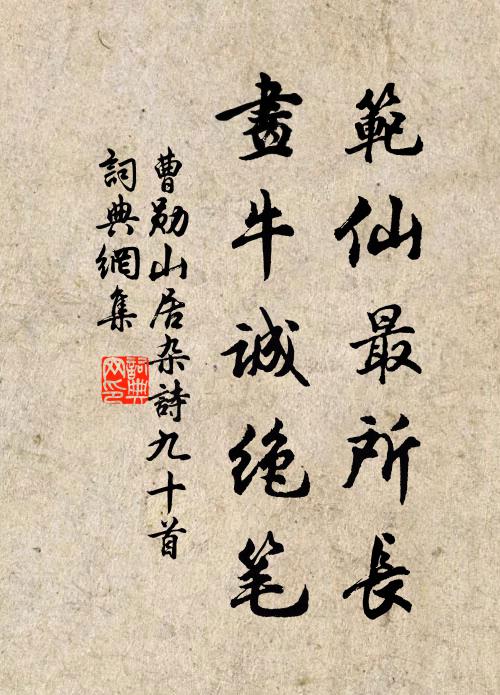 範仙最所長
畫牛诚絶笔
曹勋山居杂詩九十首
詞典網集
詞典網印